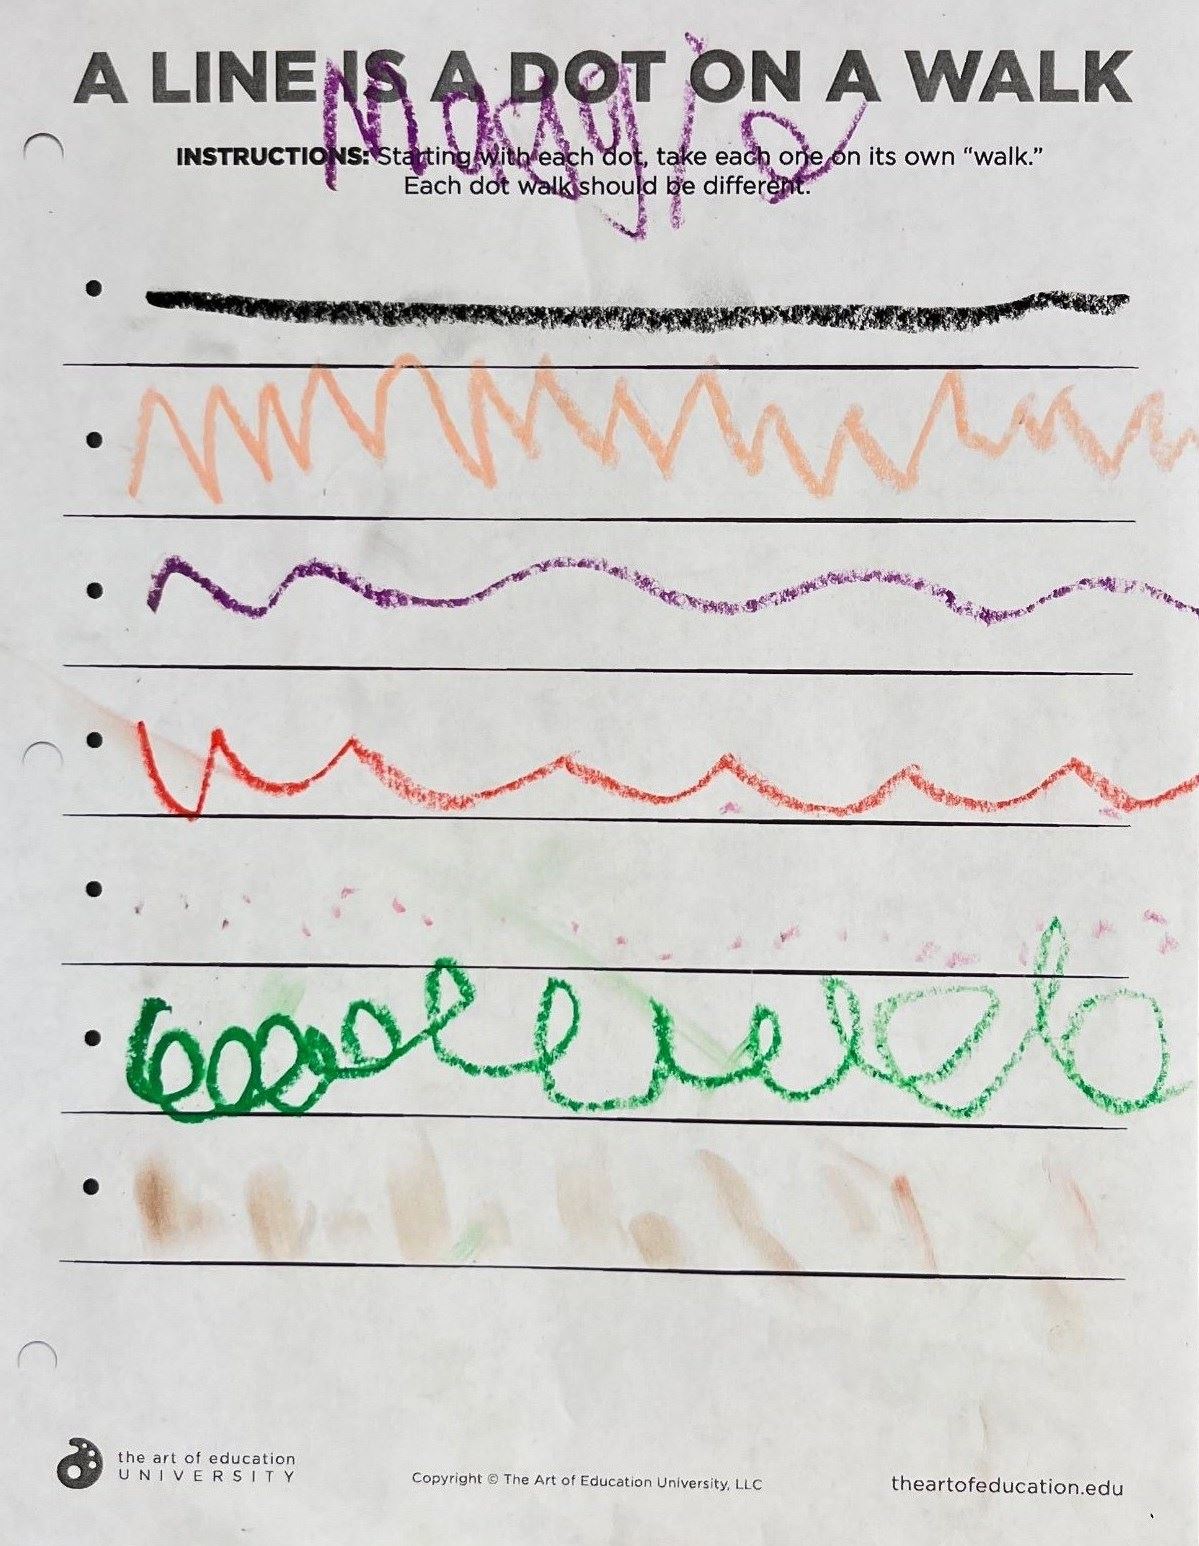 A LINE IS A DOT ON A WALK
Maggie
INSTRUCTIONS: Starting with each dot, take each one on its own “walk.”
Each dot walk should be different.
the art of education
UNIVERSITY
Copyright © The Art of Education University, LLC
theartofeducation.edu